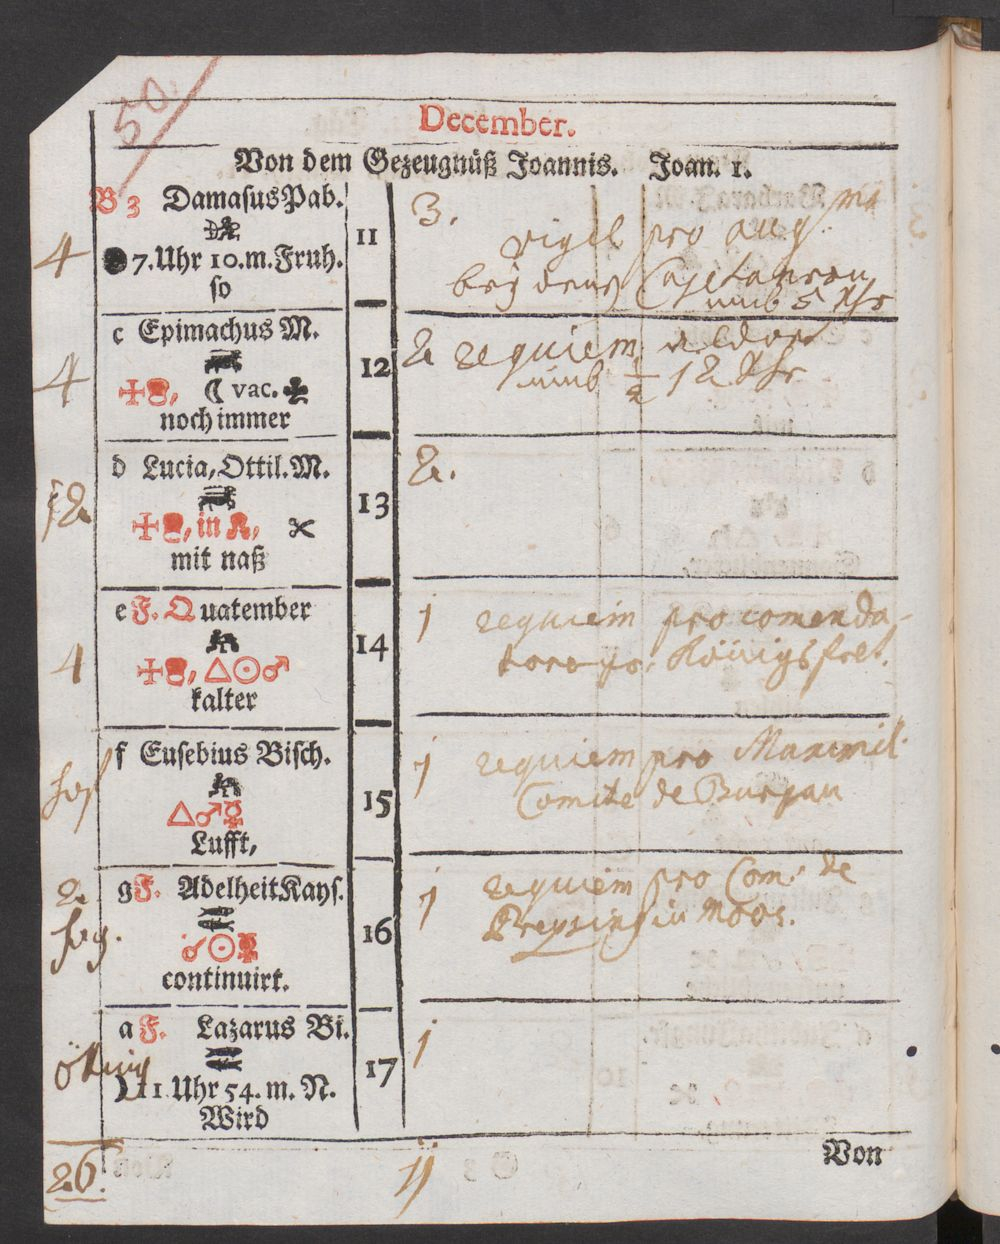 50.
December.
Von dem Gezeugnüß Joannis. Joan. 1.
B 3 Damasus Pab.
4
7. Uhr 10. m. Fruh.
so
11
3.
vigil pro aug: ma
beÿ denen Cajetanern
umb 5 Uhr
c Epimachus M.
4
vac.
noch immer
12
2 requiem
umb ½ 12 Uhr
d Lucia, Ottil. M.
2.
in
mit naß
13
2.
e F. Quatember
4
kalter
14
1 requiem pro comenda-
tore Königsfeld.
f Eusebius Bisch.
Lufft,
15
1 requiem pro Maximil:
Comite de Burgau
g F. Adelheit Kays.
2.
continuirt.
16
1 requiem pro Com: de
Preysing in Moos.
a F. Lazarus Bi.
11 Uhr 54. m. N.
Wird
17
1
Von
26.
11